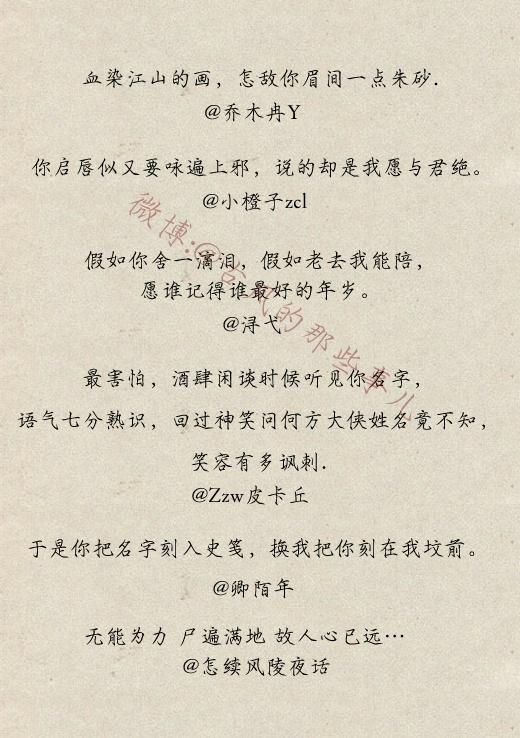 血染江山的画，怎敌你眉间一点朱砂.
@乔木冉Y
你启唇似又要咏遍上邪，说的却是我愿与君绝。
@小橙子zcl
假如你舍一滴泪，假如老去我能陪，
愿谁记得谁最好的年岁。
@浔弋
最害怕，酒肆闲谈时候听见你名字，
语气七分熟识，回过神笑问何方大侠姓名竟不知，
笑容有多讽刺.
@Zzw皮卡丘
于是你把名字刻入史笺，换我把你刻在我坟前。
@卿陌年
无能为力 尸遍满地 故人心已远…
@怎续风陵夜话
微博:@古风的那些事儿